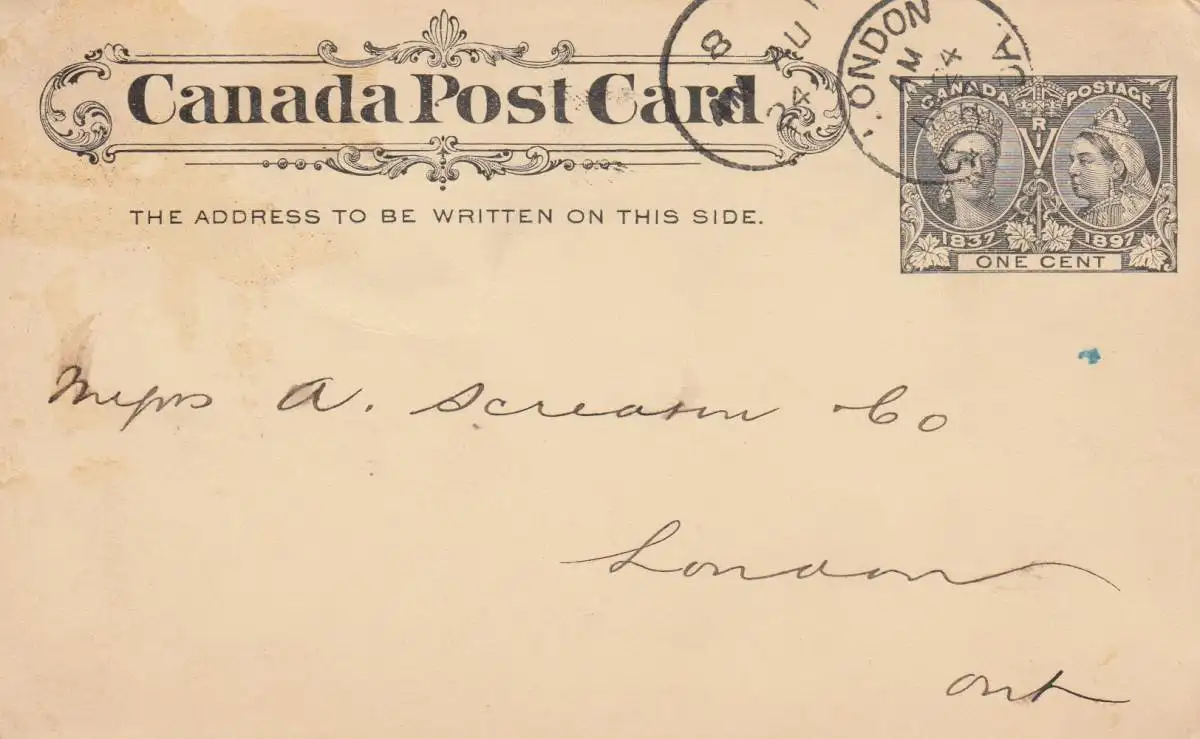 Canada Post Card
THE ADDRESS TO BE WRITTEN ON THIS SIDE.
8
AM
AU
24
LONDON
AM
CA
CANADA POSTAGE
V R I
1837 1897
ONE CENT
Messrs A. Screaton Co
London
Ont